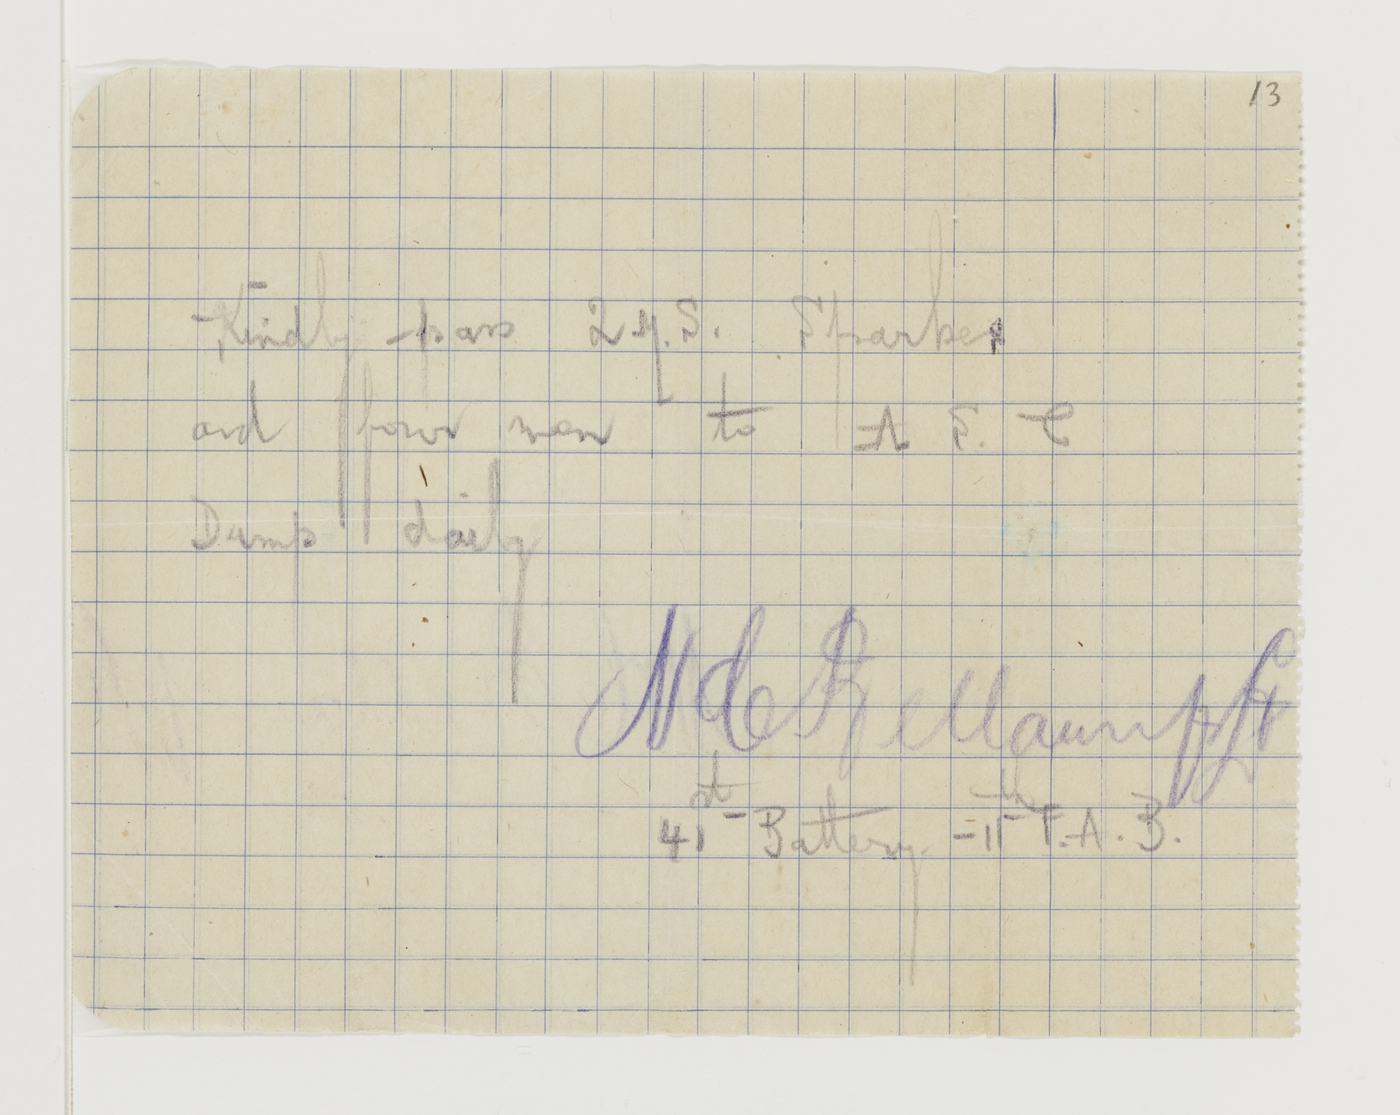 13
Kindly pass 2 M. S. Sparkes
and four men to A S. C
Dump daily
N C Lt
41st Battery - 11th F. A. B.